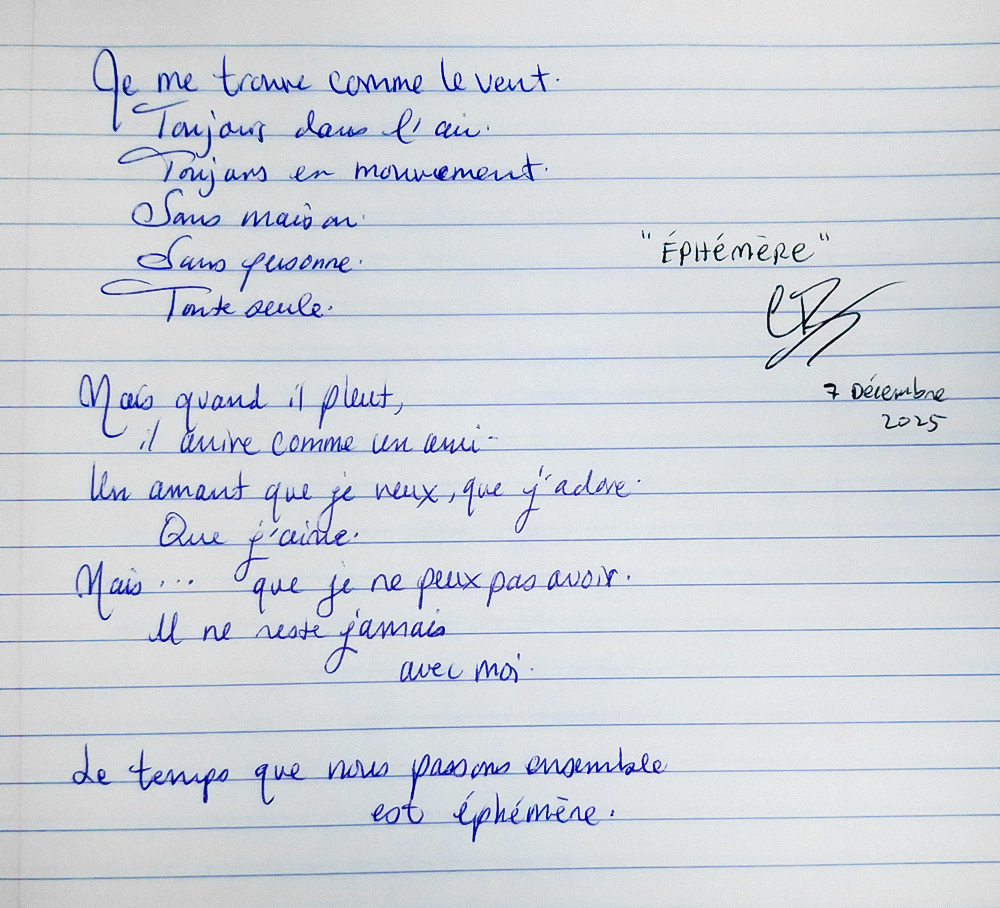 Je me trouve comme le vent.
Toujours dans l'air.
Toujours en mouvement.
Sans maison.
Sans personne.
Toute seule.
"ÉPHÉMÈRE"
7 Décembre
2025
Mais quand il pleut,
il arrive comme un ami-
Un amant que je veux, que j'adore.
Que j'aime.
Mais... que je ne peux pas avoir.
Il ne reste jamais
avec moi.
Le temps que nous passons ensemble
est éphémère.